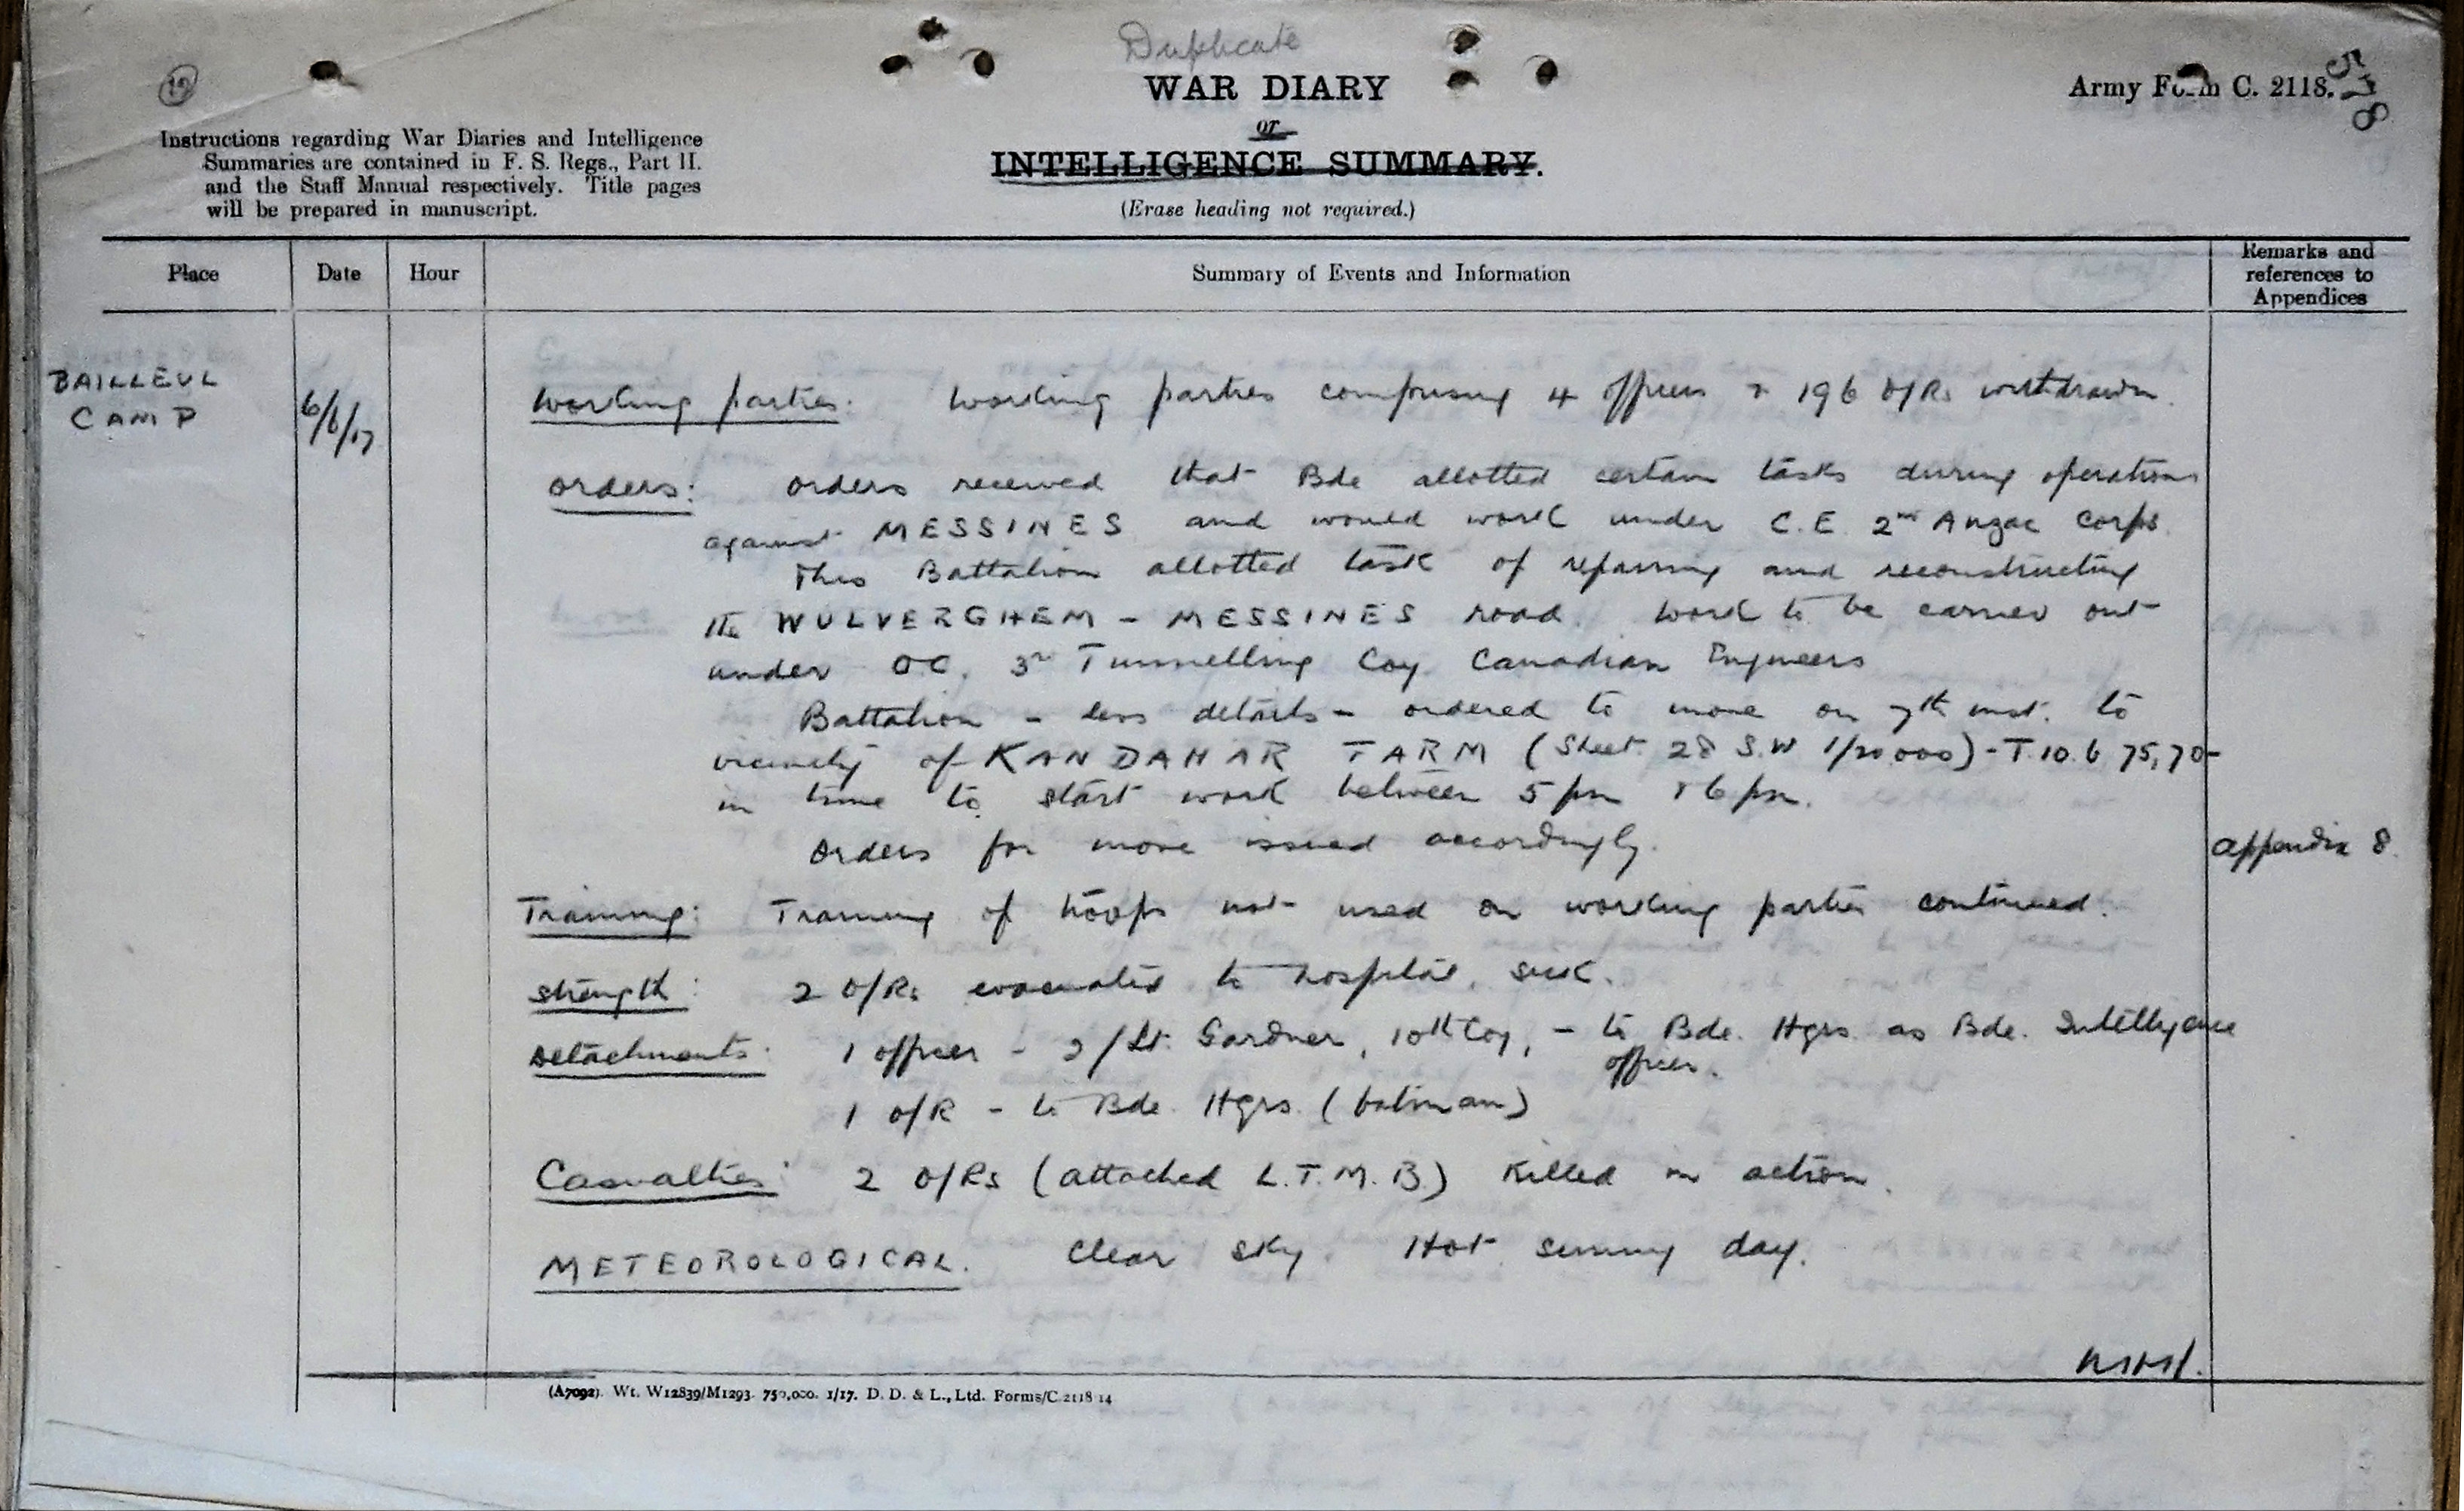 Duplicate
12
WAR DIARY
or
INTELLIGENCE SUMMARY.
(Erase heading not required.)
Army Form C. 2118.
548
Instructions regarding War Diaries and Intelligence
Summaries are contained in F. S. Regs., Part II.
and the Staff Manual respectively. Title pages
will be prepared in manuscript.
Place Date Hour Summary of Events and Information Remarks and references to Appendices
BAILLEUL
CAMP
6/6/17
Working parties: Working parties comprising 4 officers & 196 O/Rs withdrawn.
Orders: Orders received that Bde allotted certain tasks during operations
against MESSINES and would work under C.E. 2nd Anzac Corps.
This Battalion allotted task of repairing and reconstructing
the WULVERGHEM - MESSINES road. Work to be carried out
under OC. 3rd Tunnelling Coy Canadian Engineers
Battalion - less details - ordered to move on 7th inst. to
vicinity of KANDAHAR FARM (Sheet 28 S.W 1/20,000) - T.10.b 75,70 -
in time to start work between 5 pm & 6 pm.
Orders for move issued accordingly.
Appendix 8.
Training: Training of troops not used on working parties continued.
Strength: 2 O/Rs evacuated to hospital, sick.
Detachments: 1 officer - 2/Lt. Gardner, 10th Coy, - to Bde. Hqrs. as Bde. Intelligence
officer.
1 O/R - to Bde. Hqrs. (batman)
Casualties: 2 O/Rs (attached L.T.M.B.) killed in action.
METEOROLOGICAL. Clear sky. Hot sunny day.
(A7092). Wt. W12839/M1293. 750,000. 1/17. D. D. & L., Ltd. Forms/C.2118/14